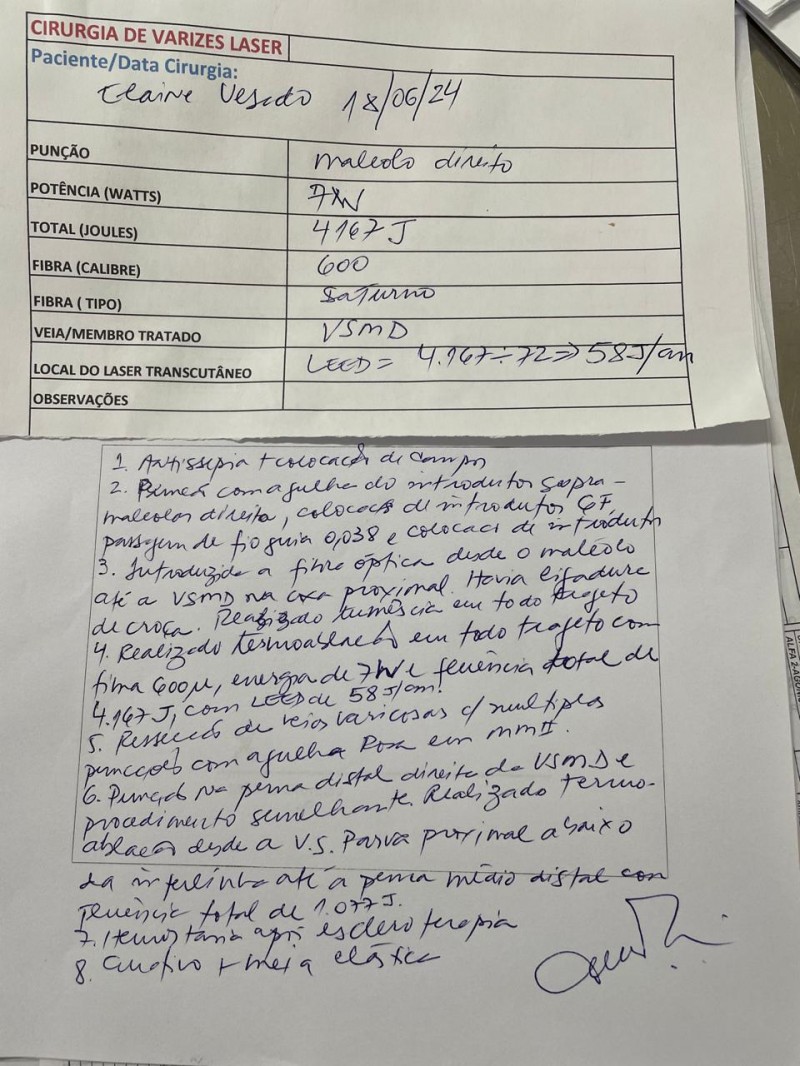 CIRURGIA DE VARIZES LASER
Paciente/Data Cirurgia:
Elaine 18/06/24
PUNÇÃO maleolo direito
POTÊNCIA (WATTS) 7W
TOTAL (JOULES) 4167 J
FIBRA (CALIBRE) 600
FIBRA ( TIPO) Saturno
VEIA/MEMBRO TRATADO VSMD
LOCAL DO LASER TRANSCUTÂNEO LEED = 4.167÷72=> 58J/cm
OBSERVAÇÕES
1. Antissepsia + colocação de campos
2. Punção com agulha do introdutor supra-
maleolar direita, colocação de introdutor 6F,
passagem de fio guia 0,038 e colocação de introdutor
3. Introduzida a fibra óptica desde o maléolo
até a VSMD na coxa proximal. Havia ligadura
de croça. Realizado tumescia em todo trageto
4. Realizado termoablação em todo trageto com
fibra 600µ, energia de 7W e fluência total de
4.167J, com LEED de 58 J/cm.
5. Ressecção de veias varicosas c/ multiplas
puncções com agulha Rosa em mmII.
6. Punção na perna distal direita da VSMD e
procedimento semelhante. Realizado termo-
ablação desde a V.S. Parva proximal abaixo
da interlinha até a perna médio distal com
fluência total de 1.077J.
7. Hemostasia após escleroterapia
8. Curativo + meia elástica